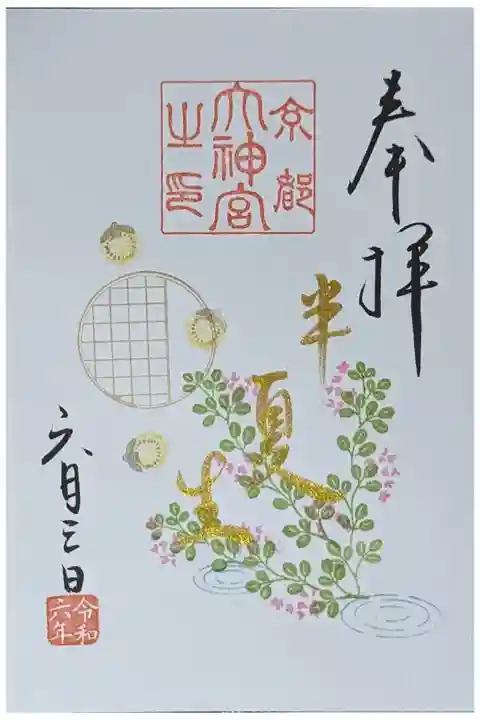 奉拝
京都
大神宮
之印
半夏生
六月三日
令和
六年